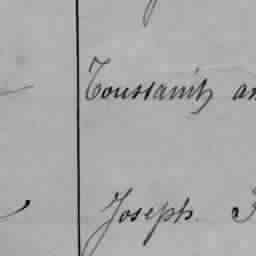 Toussaint an
Joseph